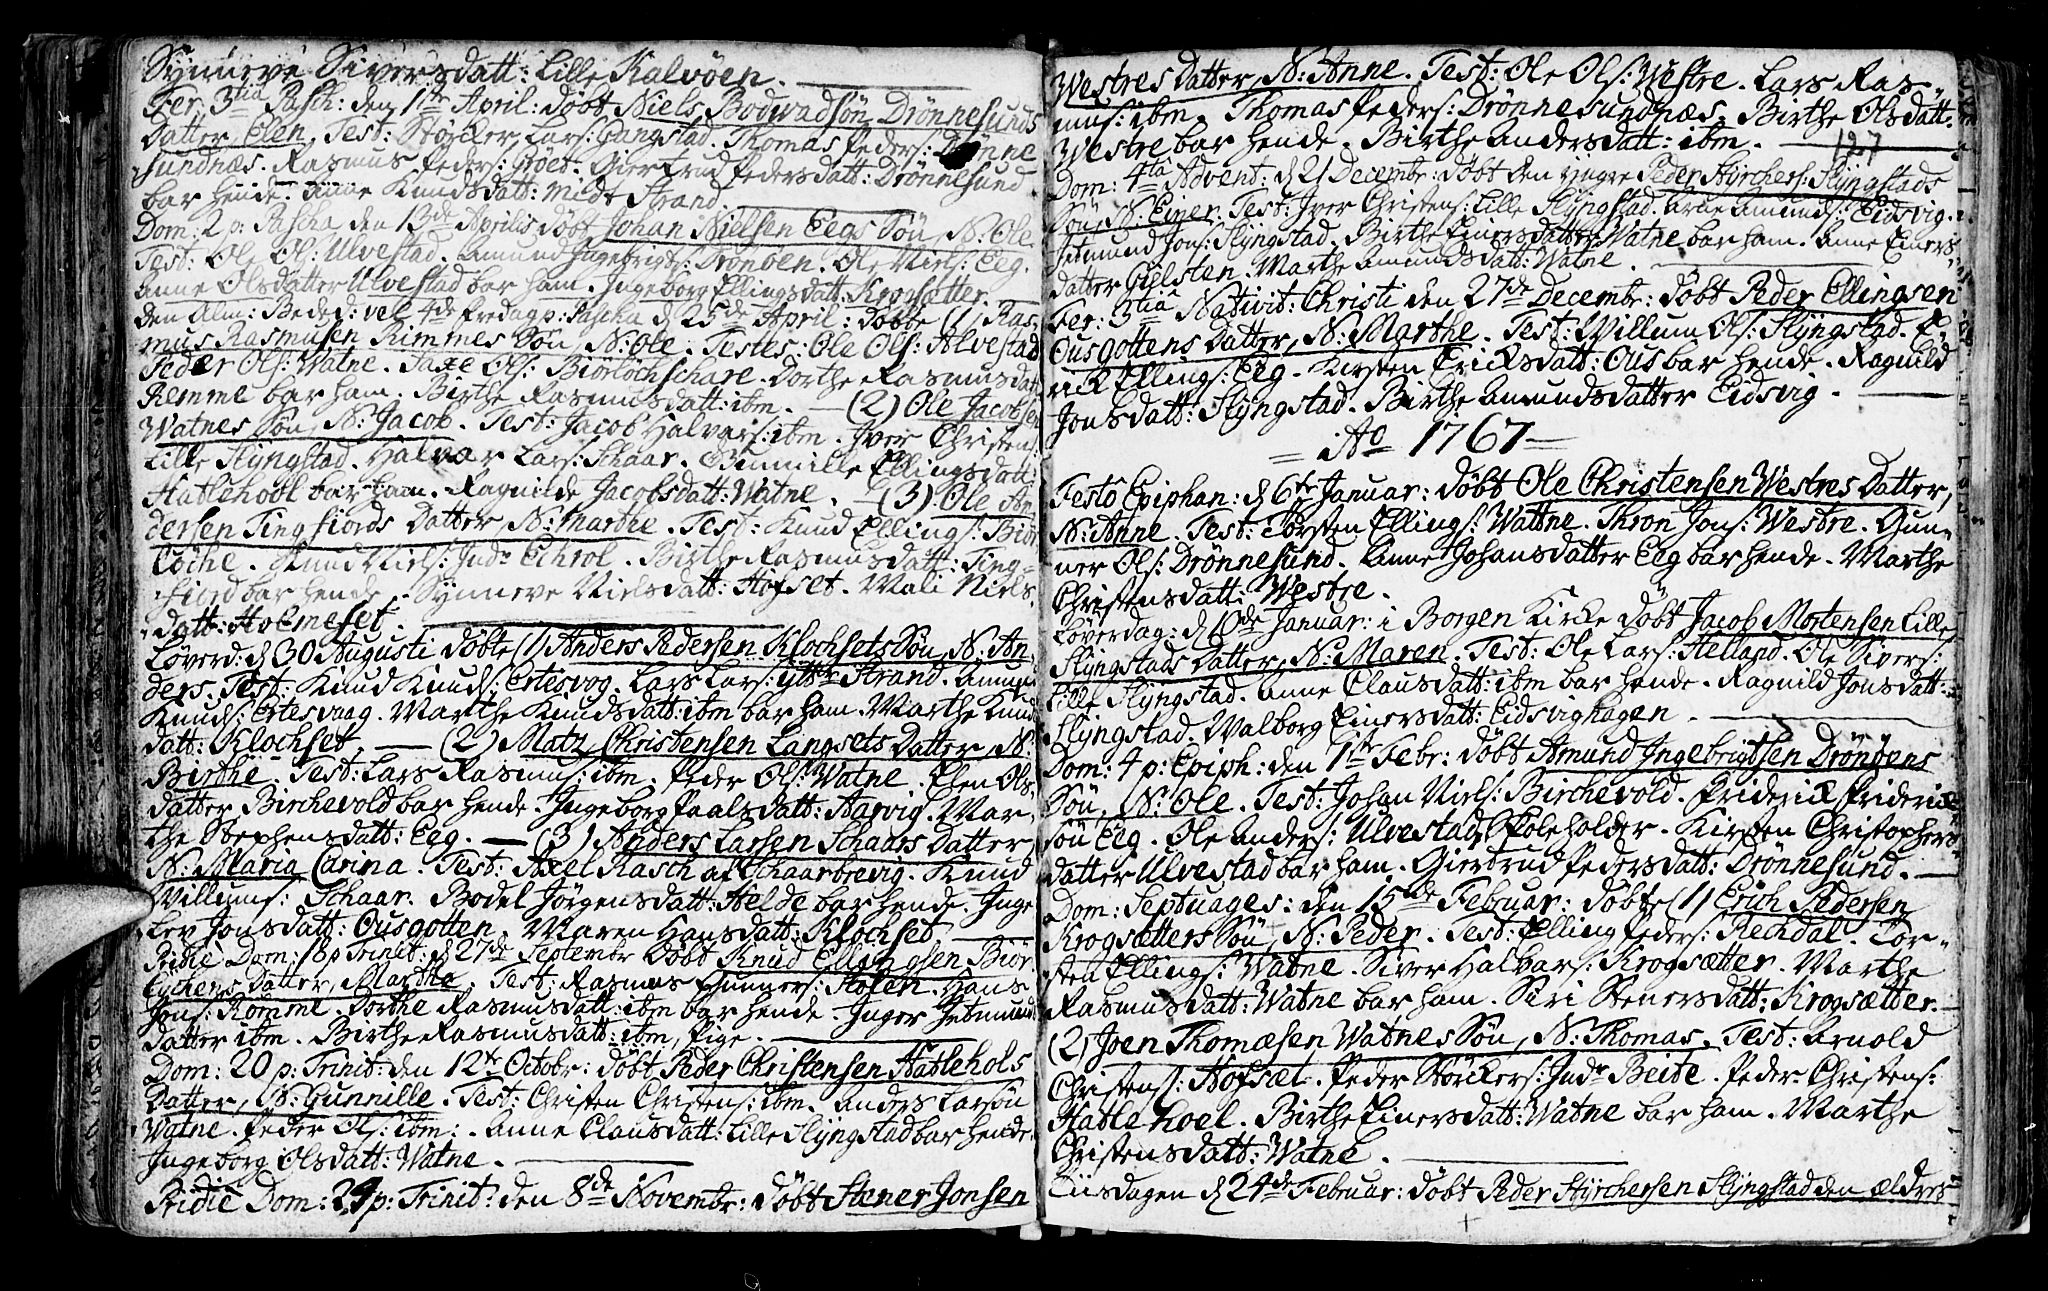 Synneve Siversdatt: Lille Kalvöen.
Fer. 3tia Pasch: den 1ste April: döbt Niels Bodvadsön Drönnesunds
Datter Elen, Test: Störcker Lars: Gangstad. Thomas Peders: Drönne
sundnæs. Rasmus Peders: Gröet. Giertrud Pedersdatt: Drönnesund
bar hende. Anne Knudsdatt: midt Strand
Dom: 2 p: Pascha den 13de Aprilis döbt Johan Nielsen Eegs Sön, N: Ole.
Test: Ole Ols: Ulvestad. Amund Ingebrigts: Drönöen. Ole Niels: Eeg.
Anne Olsdatter Ulvestad bar ham. Ingeborg Ellingsdatt: Krogsætter.
den Alm: Bede d: vel 4de Fredag p: Pascha d 25de April: döbte (1) Ras-
mus Rasmusen Rimmes Sön, N: Ole. Testes: Ole Ols: Alvestad
Peder Ols: Watne. Saxe Ols: Biörlochschare. Dorthe Rasmusdatt:
Remme bar ham. Birthe Rasmusdatt: ibm. — (2) Ole Jacobsen
Watnes Sön, N: Jacob. Test: Jacob Halvars: ibm. Iver Christens:
Lille Slÿngstad. Halvar Lars: Schaar. Gunnille Ellingsdatt:
Hatlehool bar ham. Ragnilde Jacobsdatt: Watne. — (3) Ole An-
dersen Tingfiords Datter N: Marthe. Test: Knud Ellings: Biör
löche. Knud Niels: Indr Echrol. Birthe Rasmusdatt: Ting-
fiord bar hende. Synneve Nielsdatt: Hofset. Mali Niels-
datt: Hvemeset.
Löverd: d 30 Augusti döbte (1) Anders Pedersen Klochsets Sön, N: An-
ders. Test: Knud Knuds: Ertesvog. Lars Lars: ytbr Strand. Amun
Knuds: Ertesvaag. Marthe Knudsdatt: ibm bar ham. Marthe Knud
datt: Klochset. — (2) Matz Christensen Langsets Datter, N:
Birthe. Test: Lars Rasmus: ibm. Peder Ols: Watne. Elen Ols-
datter Birchevold bar hende. Ingeborg Paalsdatt: Aarvig. Mar-
the Stephensdatt: Eeg. — (3) Anders Larsen Schaars Datter,
N: Maria Carina. Test: Axel Rasch af Schaarbrevig. Knud
Willums: Schaar. Bodel Jörgensdatt: Helde bar hende. Inge
Lev Jonsdatt: Ousgotten. Maren Hansdatt: Klochset
Pridie Dom: 18 p Trinit: d 27de Septembr döbt Knud Ellingsen Biör-
löchens Datter, Marthe. Test: Rasmus Gunners: Stölen. Hans
Jons: Romme. Dorthe Rasmusdatt: ibm bar hende. Inger Jetmund-
datter ibm. Birthe Rasmusdatt: ibm, Pige.
Dom: 20 p: Trinit: den 12te Octobr: döbt Peder Christensen Hatlehols
Datter, N: Gunnille. Test: Christen Christens: ibm. Anders Larsön
Watne. Peder Ols: ibm:. Anne Clausdatt: Lille Slÿngstad bar hende.
Ingeborg Olsdatt: Watne.
Pridie Dom: 24 p: Trinit: den 8de Novembr: döbt Stener Jonsen
Westres Datter, N: Anne. Test: Ole Ols: Westre. Lars Ras-
mus: ibm. Thomas Peders: Drönnesundnæs. Birthe Olsdatt:
Westre bar hende. Birthe Andersdatt: ibm.
127
Dom: 4ta Advent: d 21 Decembr: döbt den yngre Peder Styrchers: Slÿngstads
Sön, N: Einer. Test: Iver Christens: Lille Slÿngstad. Arne Amunds: Eidsvig.
Jetmund Jons: Slÿngstad. Birthe Einersdatter Watne bar ham. Anne Einers
datter Gielsten. Marthe Amundsdatt: Watne.
Fer: 3tia Nativit: Christi den 27de Decembr: döbt Peder Ellingsen
Ousgottens Datter, N: Marthe. Test: Willum Ols: Slÿngstad. E-
rick Ellings: Eeg. Kirsten Ericksdatt: Ous bar hende. Ragnild
Jonsdatt: Slÿngstad. Birthe Amundsdatter Eidsvig.
= Ao 1767 —
Festo Epiphan: d 6te Januar: döbt Ole Christensen Westres Datter,
N: Anne. Test: Torsten Ellings: Wattne. Thron Jons: Westre. Gun-
ner Ols: Drönnesund. Anne Johansdatter Eeg bar hende. Marthe
Christensdatt: Westre.
Löverdag: d 10de Januar: i Borgen Kirke döbt Jacob Mortensen Lille
Slÿngstads Datter, N: Maren. Test: Ole Lars: Helland. Ole Sivers:
Lille Slÿngstad. Anne Clausdatt: ibm bar hende. Ragnild Jonsdatt:
Slÿngstad. Walborg Einersdatt: Eidsvighagen.
Dom: 4 p: Epiph: den 1ste Febr: döbt Amund Ingebrigtsen Drönöens
Sön, N: Ole. Test: Johan Niels: Birchevold. Friderick Friderick
sön Eeg. Ole Anders: Ulvestad, Skoleholder. Kirsten Christophers
datter Ulvestad bar ham. Gierdrud Pedersdatt: Drönnesund.
Dom: Septuages: den 15de Februar: döbte (1) Erich Pedersen
Krogsætters Sön, N: Peder. Test: Elling Peders: Rechdal. Tor-
sten Ellings: Watne. Siver Halvars: Krogsætter. Marthe
Rasmusdatt: Watne bar ham. Siri Stenersdatt: Krogsætter.
(2) Joen Thomæsen Watnes Sön, N: Thomas. Test: Arnold
Christens: Hofsæt. Peder Störckers: Indr Beite. Peder Christens:
Hatlehoel. Birthe Einersdatt: Watne bar ham. Marthe
Christensdatt: Watne.
Tiisdagen d 24de Februar: döbt Peder Styrchersen Slÿngstad den ælders